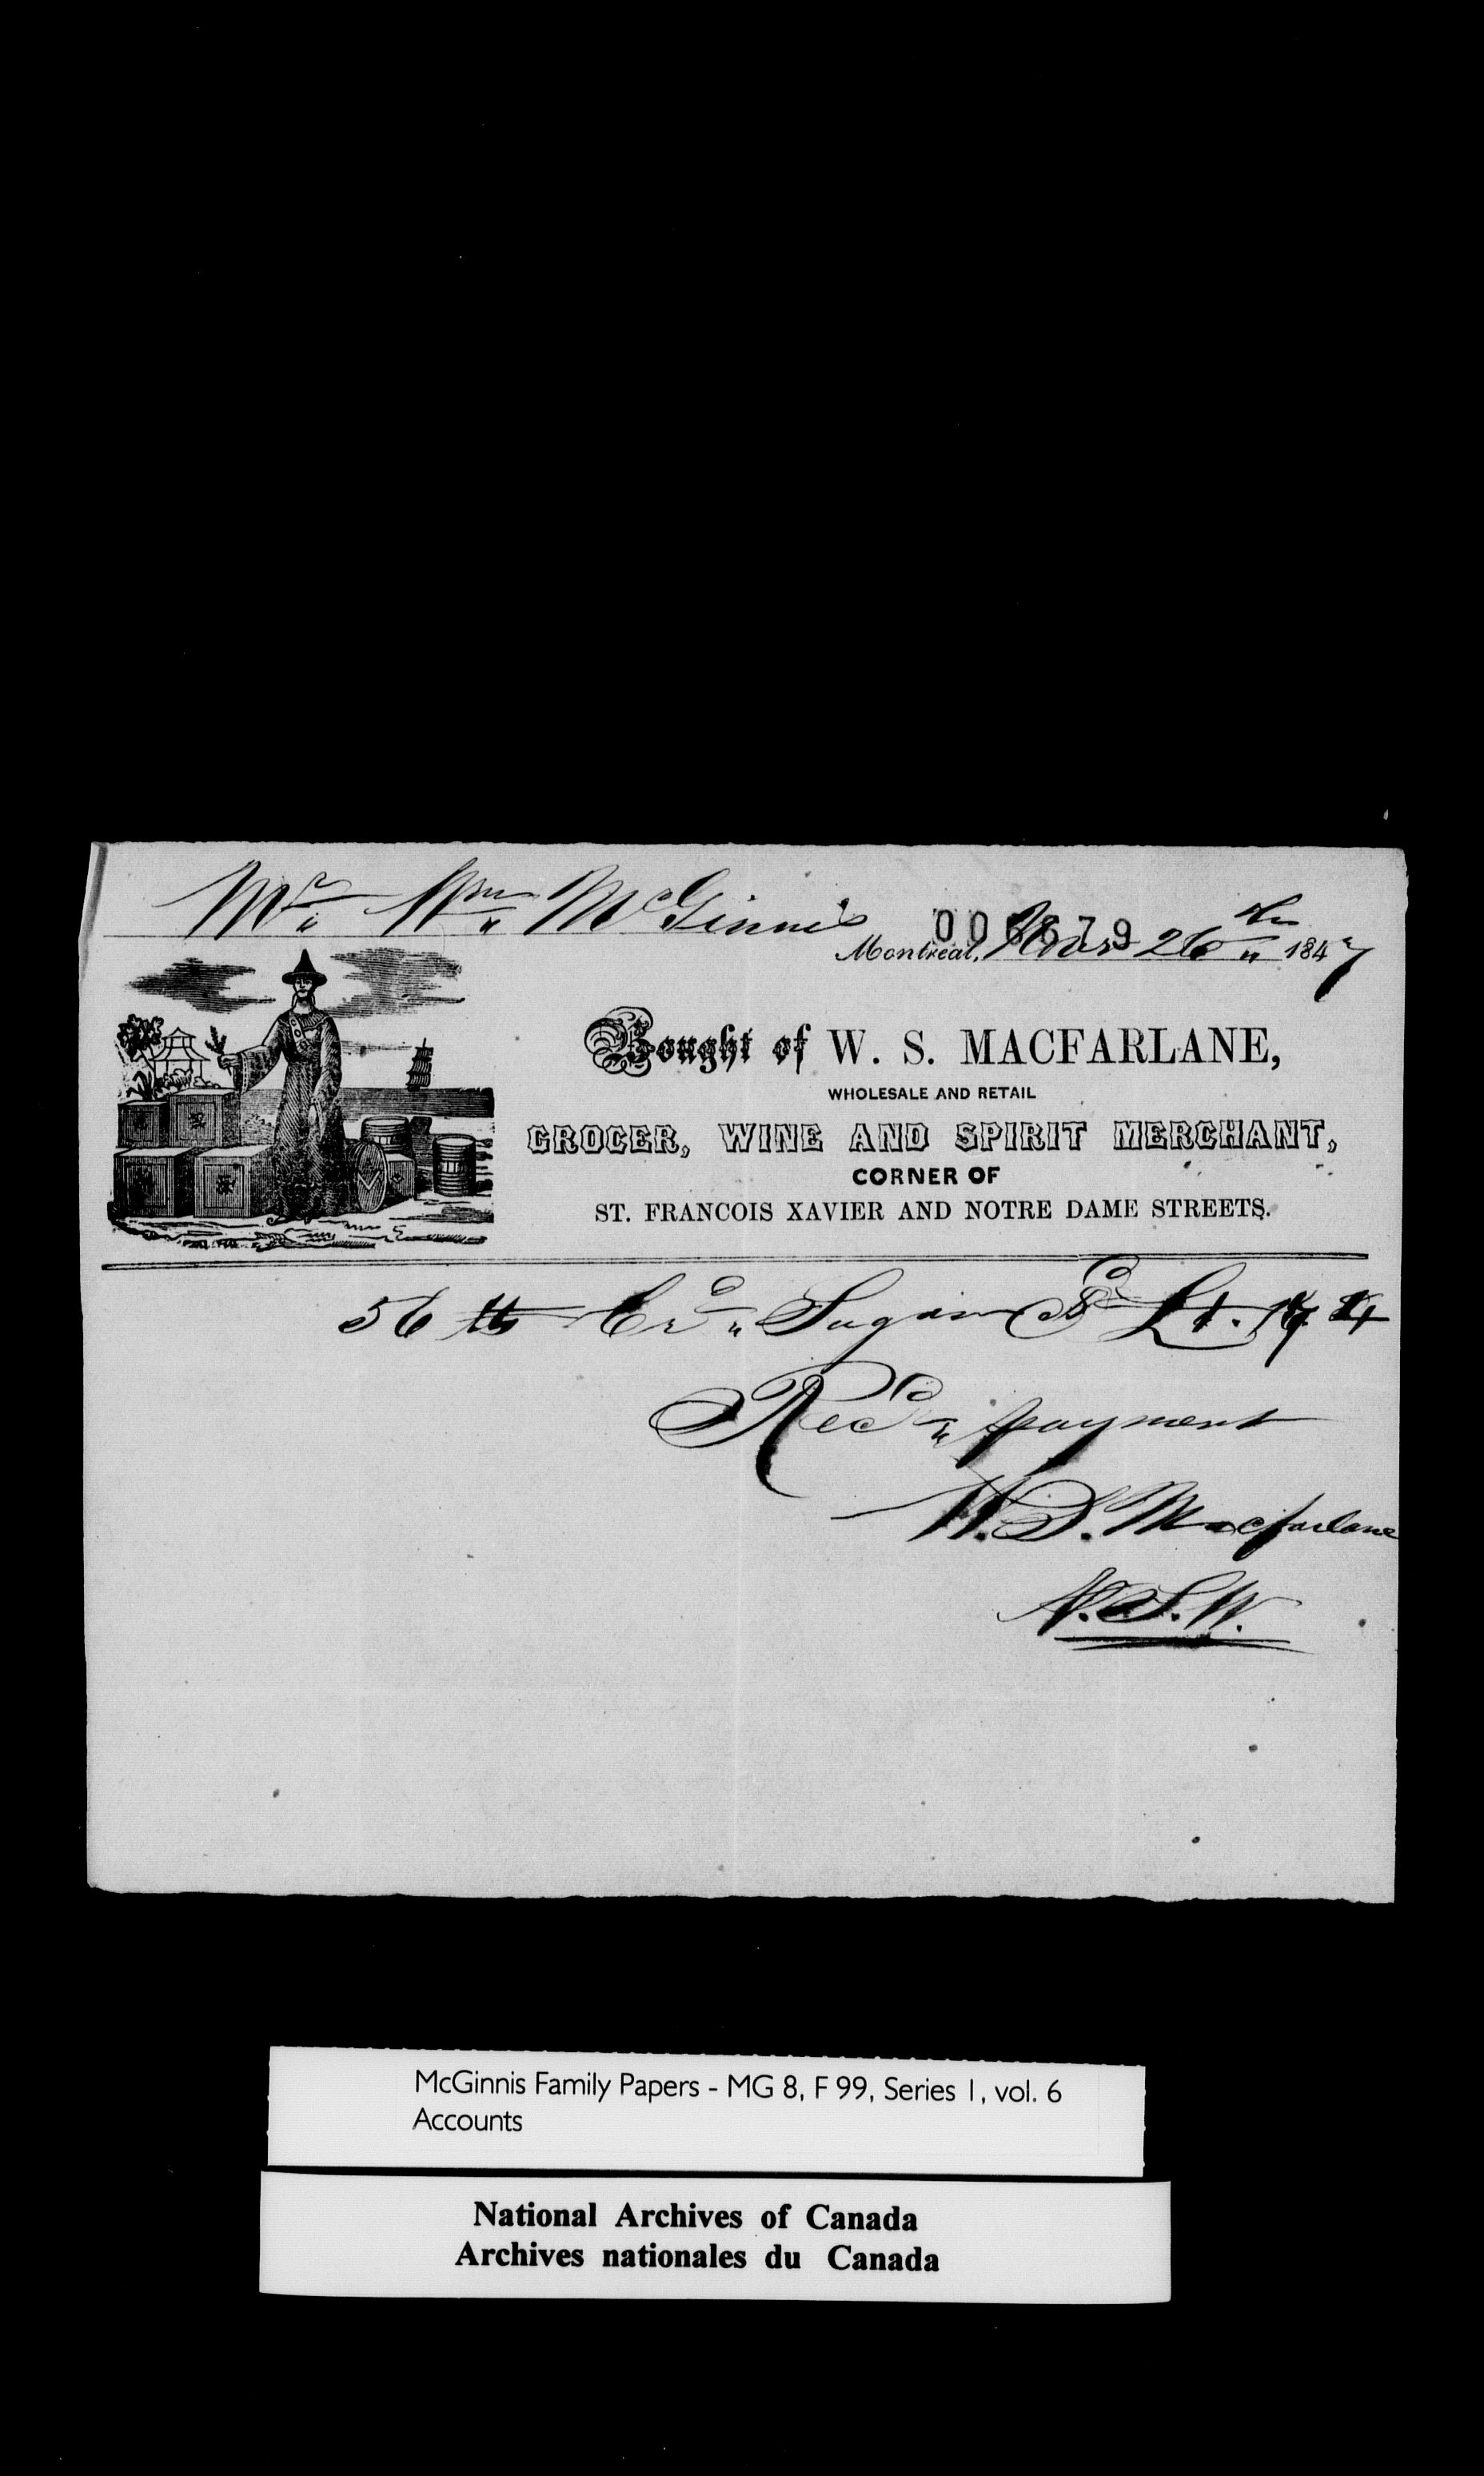 Mr Wm McGinnis
006679
Montreal, Novr 26th 1847
Bought of W. S. MACFARLANE,
WHOLESALE AND RETAIL
GROCER, WINE AND SPIRIT MERCHANT,
CORNER OF
ST. FRANCOIS XAVIER AND NOTRE DAME STREETS.
56 lb Crd Sugar
Recd payment
W. S. Macfarlane
McGinnis Family Papers - MG 8, F 99, Series 1, vol. 6
Accounts
National Archives of Canada
Archives nationales du Canada